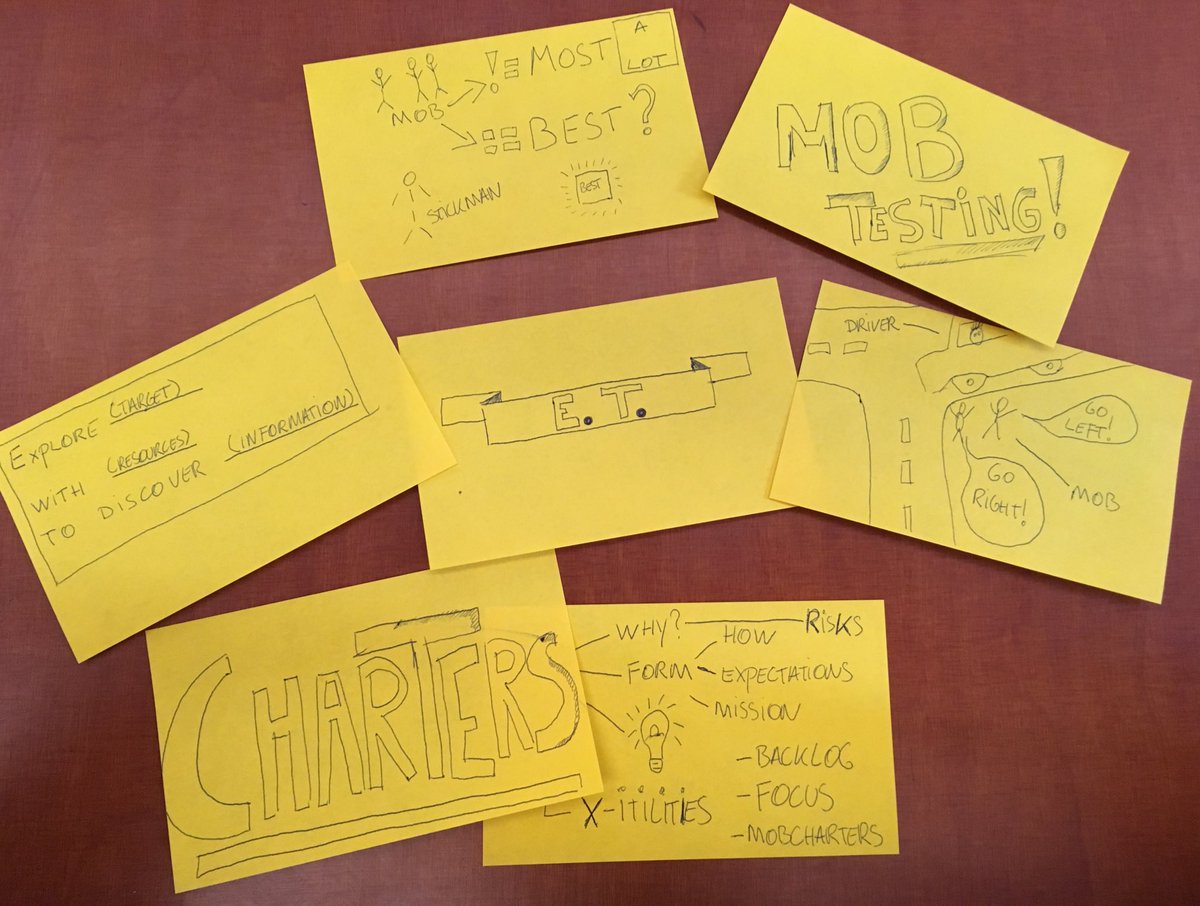 MOB
!= MOST
A
LOT
== BEST?
STICKMAN
BEST
MOB
TESTING!
EXPLORE (TARGET)
WITH (RESOURCES)
TO DISCOVER (INFORMATION)
E.T.
DRIVER
GO
LEFT!
GO
RIGHT!
MOB
CHARTERS
WHY? RISKS
HOW
FORM EXPECTATIONS
MISSION
-BACKLOG
X-ITILITIES -FOCUS
-MOBCHARTERS